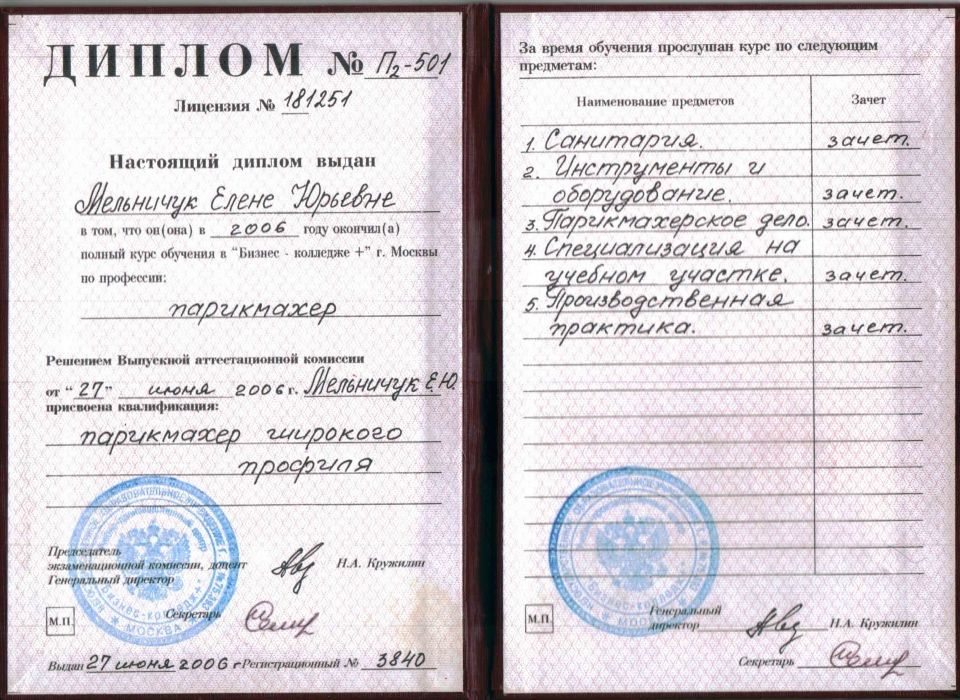 ДИПЛОМ № П2-501
Лицензия № 181251
Настоящий диплом выдан
Мельничук Елене Юрьевне
в том, что он(она) в 2006 году окончил(а)
полный курс обучения в "Бизнес - колледже +" г. Москвы
по профессии:
парикмахер
Решением Выпускной аттестационной комиссии
от "27" июня 2006 г. Мельничук Е.Ю.
присвоена квалификация:
парикмахер широкого
профиля
Председатель
экзаменационной комиссии, доцент
Генеральный директор
Н.А. Кружилин
Секретарь
М.П.
Бизнес-колледж+
МОСКВА
Выдан 27 июня 2006 г Регистрационный № 3840
За время обучения прослушан курс по следующим
предметам:
Наименование предметов Зачет
1. Санитария. зачет.
2. Инструменты и
оборудование. зачет.
3. Парикмахерское дело. зачет.
4. Специализация на
учебном участке. зачет.
5. Производственная
практика. зачет.
М.П.
Генеральный
директор Н.А. Кружилин
Секретарь